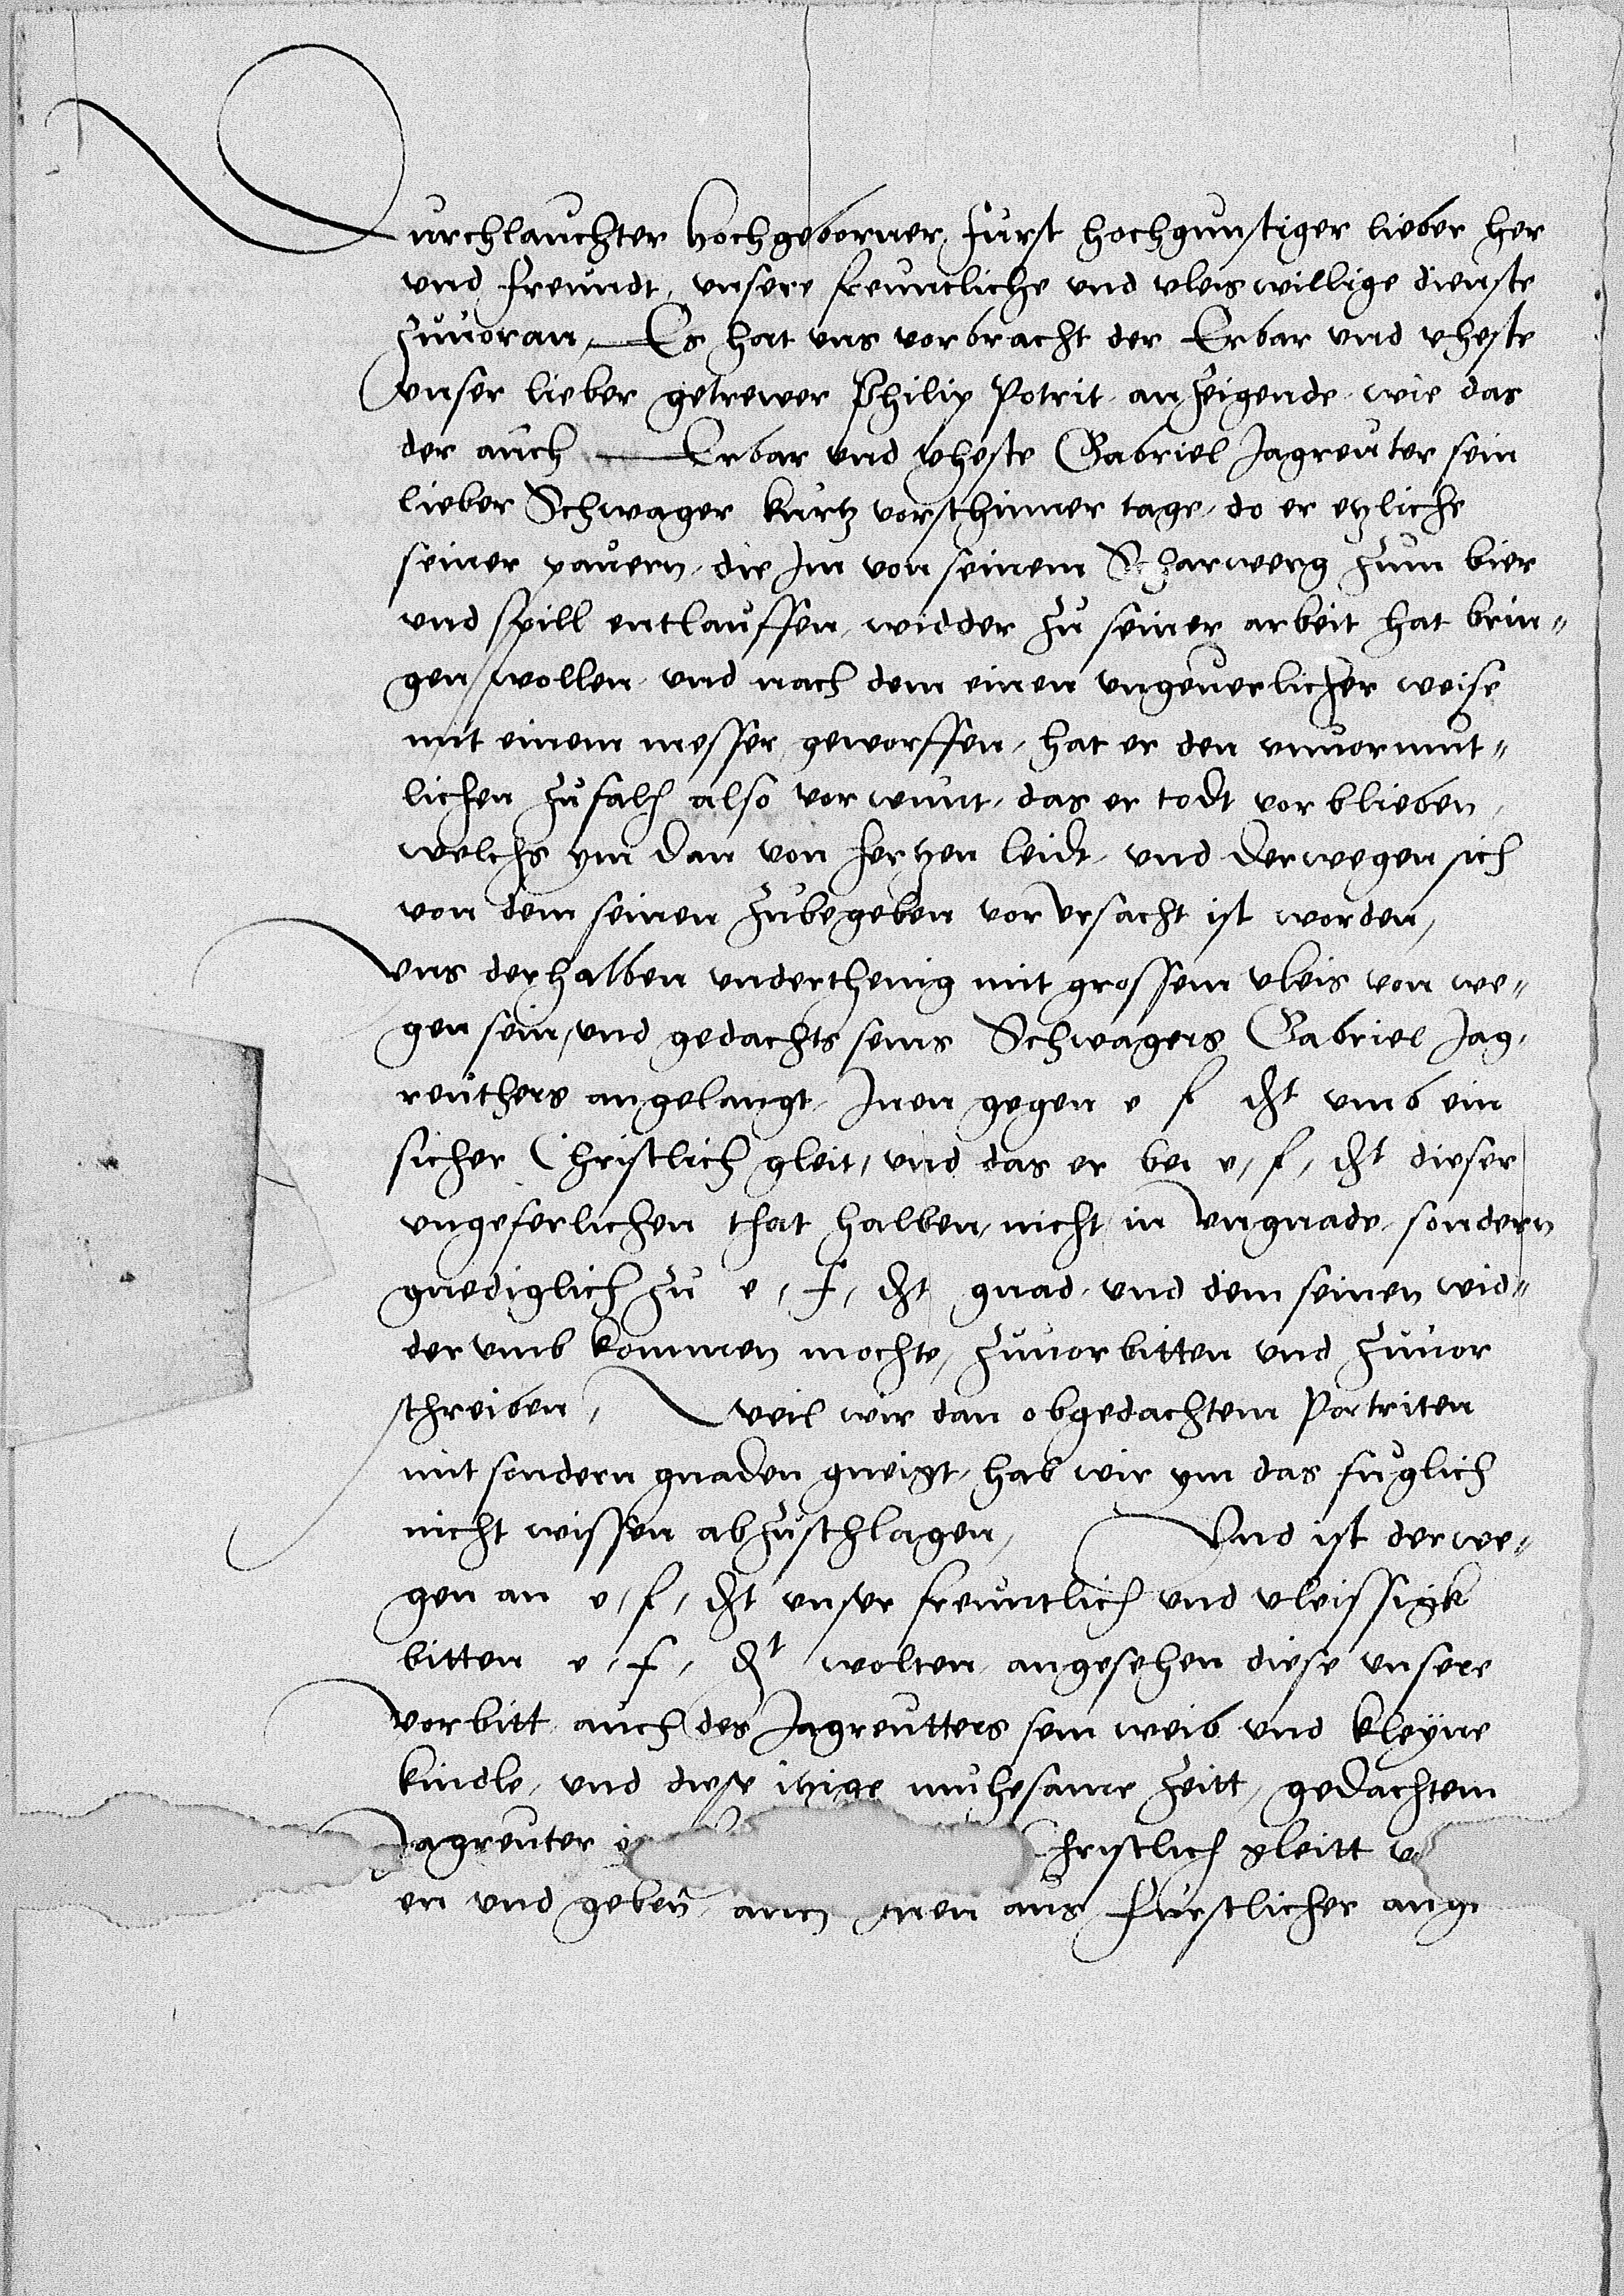 Durchlauchter hochgeborner furst hochgunstiger lieber her
und freundt, unsere freuntliche und vleis willige dienste
zuuoran, Es hat uns vorbracht der Erbar und vheste
unser lieber getrewer Philip Potrit anzeigende wie das
der auch Erbar und vheste Gabriel Jagreuter sein
lieber Schwager kurtz vorschinner tage, do er etzliche
seiner pauern, die Jm von seinem Scharwerg zum bier
und spill entlauffen, widder zu seiner arbeit hat brin„
gen wollen, und nach dem einen ungeuerlicher weise
mit einem messer geworffen, hat er den unuormut„
lichen zufalh also vorwunt, das er todt vorblieben,
welchs ym dan von hertzen leidt, und derwegen sich
von dem seinen zubegeben vorursacht ist worden,
uns derhalben underthenig mit grossem vleis von we„
gen sein, und gedachts seins Schwagers Gabriel Jag„
reuthers angelangt, Jnen gegen e f dht umb ein
sicher Christlich gleit, und das er bei e, f, dht dieser
ungeferlichen that halben, nicht in ungnade, sondern
gnediglich zu e, f, dht gnad, und dem seinen wid„
der umb kommen mochte, zuuorbitten und zuuor
schreiben, Weil wir dan obgedachtem Portriten
mit sondern gnaden gneigt, hab wir ym das fuglich
nicht wissen abzuschlagen, Und ist derwe„
gen an e, f, dht unser freuntlich und vleissigk
bitten e, f, dht wolten angesehen diese unsere
vorbitt auch des Jagreutters sein weib und kleyne
kindle, und diese itzige muhesame zeitt, gedachtem
Jagreuter Christlich gleitt
en und geben, aus furstlicher